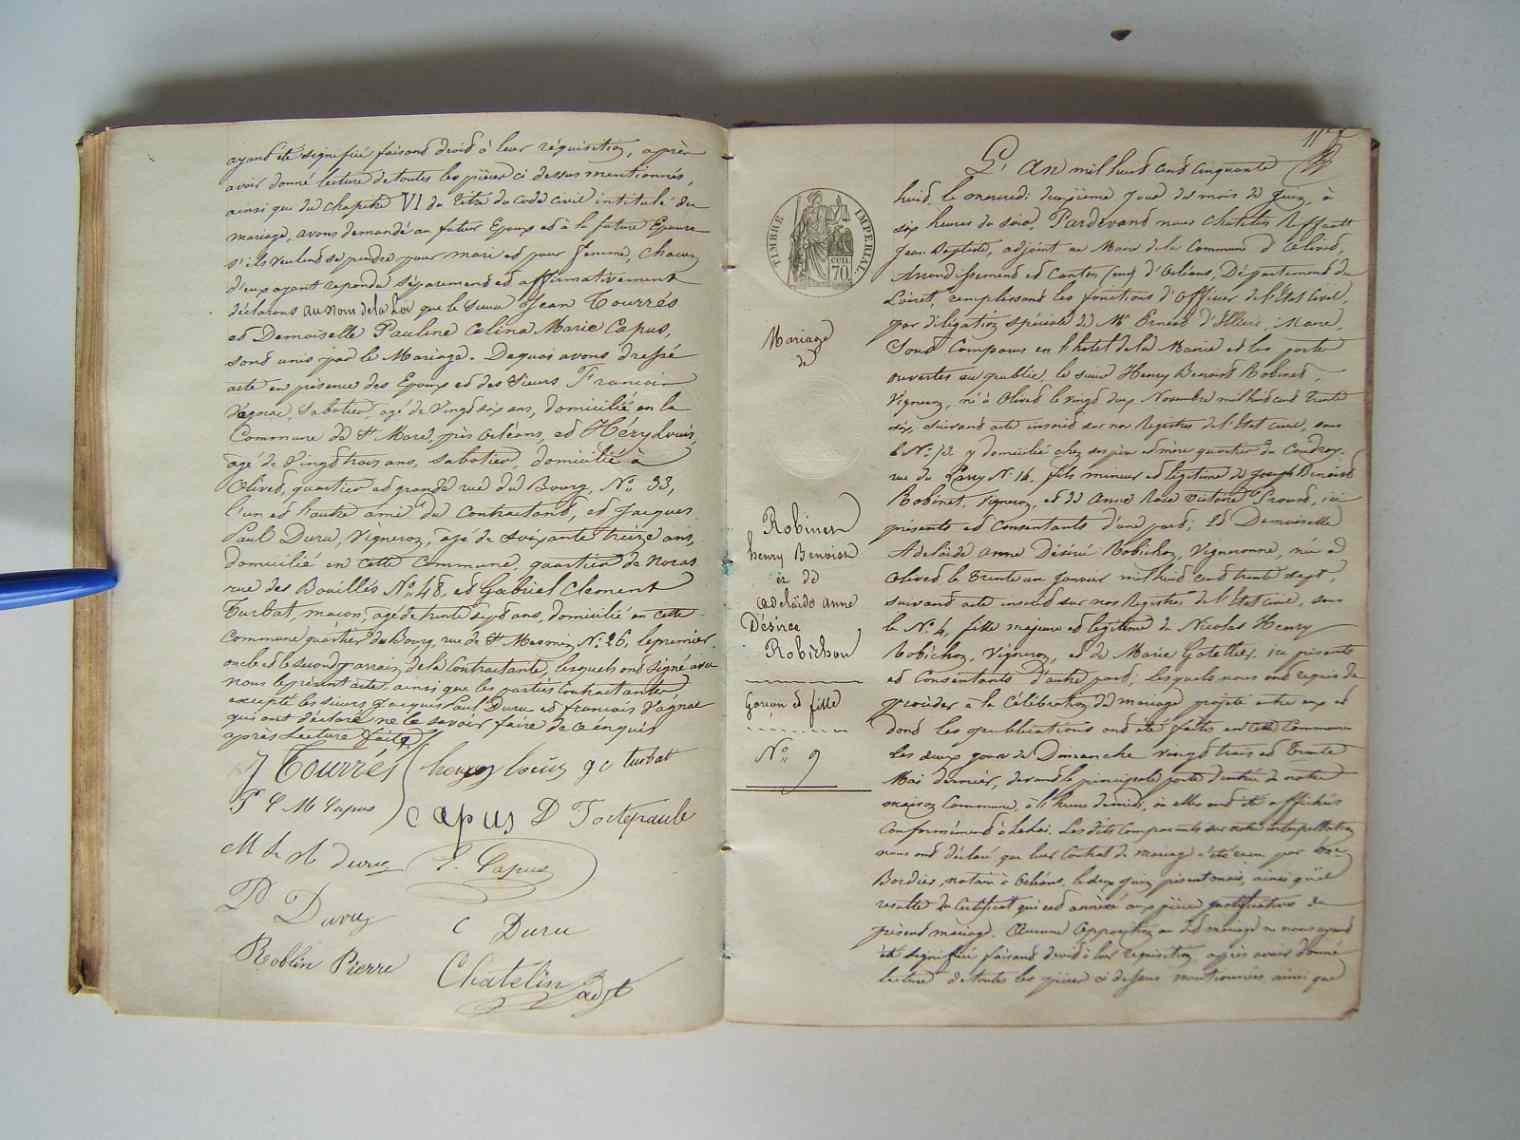 ayant été signifiée faisant droit à leur réquisition, après
avoir donné lecture de toutes les pièces ci dessus mentionnées,
ainsi que du chapitre VI du titre du code civil intitulé du
mariage, avons demandé au futur Epoux et à la future Epouse
s'ils veulent se prendre pour mari et pour femme, chacun
d'eux ayant répondu séparément et affirmativement
déclarons au nom de la Loi que le sieur Jean Tourrés
et Demoiselle Pauline Celina Marie Capus,
sont unis par le Mariage. De quoi avons dressé
acte en présence des Epoux et des Sieurs François
Vagnac, Sabotier, agé de Vingt six ans, domicilié en la
Commune de St Marc, près Orléans, et Héry Louis,
agé de Vingt trois ans, sabotier, domicilié à
Olivet, quartier et grande rue du Bourg, No 33,
l'un et l'autre ami du Contractant, et Jacques
Paul Duru, Vigneron, agé de soixante treize ans,
domicilié en cette Commune, quartier de Noras
rue des Bouillés No 48, et Gabriel Clément
Turbat, maçon, agé de trente sept ans, domicilié en cette
Commune quartier du bourg, rue de St Mesmin No 26, le premier
oncle et le second parrain de la Contractante, lesquels ont signé avec
nous le présent acte, ainsi que les parties contractantes
excepté les sieurs Jacques Paul Duru et françois Vagnac
qui ont déclaré ne le savoir faire de ce enquis
après Lecture faite
J Tourrés henry louis gc turbat
P C M Capus
capus D Foctepaule
M duru
P. Capus
P Duru
C Duru
Roblin Pierre
Chatelin adjt
117
L'An mil huit cent cinquante
huit, le mercredi deuxième Jour du mois de Juin, à
six heures du soir, Pardevant nous Chatelin
Jean Baptiste, adjoint au Maire de la Commune d'Olivet,
Arrondissement et Canton sud d'Orléans, Département du
Loiret, remplissant les fonctions d'officier de l'Etat civil,
par délégation spéciale de Mr Ernest d'Illiers, Maire,
Sont Comparus en l'hôtel de la Mairie et les portes
ouvertes au public, le sieur Henry Benoist Robinet,
Vigneron, né à Olivet le vingt deux Novembre mil huit cent trente
six, suivant acte inscrit sur nos Registres de l'Etat civil, sous
le No 72 y domicilié chez ses père et mère quartier du Coudray,
rue du No 16, fils mineur et légitime de Joseph Benoist
Robinet, Vigneron, et de Anne Rose Victoire Proust, ici
présents et Consentants d'une part; Et Demoiselle
Adelaïde Anne Désiré Robichon, Vigneronne, née à
Olivet le Trente un Janvier mil huit cent trente sept,
suivant acte inscrit sur nos Registres de l'Etat civil, sous
le No 4, fille majeure et légitime de Nicolas Henry
Robichon, Vigneron, et de Marie Gatellier, ici présents
et Consentants d'autre part; lesquels nous ont requis de
procéder à la Célébration du mariage projeté entre eux et
dont les publications ont été faites en cette Commune
les deux jours de Dimanche vingt trois et trente
Mai dernier, devant la principale porte d'entrée de notre
maison Commune, à l'heure de midi, où elles ont été affichées
Conformément à la Loi. Les dits Comparants sur notre interpellation
nous ont déclaré que leur Contrat de mariage a été reçu par
Bordier, notaire à Orléans, le deux Juin présent mois, ainsi qu'il
résulte du Certificat qui est annexé aux pièces justificatives du
présent mariage. Aucune opposition au dit mariage ne nous ayant
été signifiée faisant droit à leur réquisition après avoir donné
lecture de toutes les pièces ci dessus mentionnées ainsi que
TIMBRE IMPERIAL
CEN.
70
Mariage
de
Robinet
henry Benoist
et de
adelaïde anne
Désirée
Robichon
Garçon et fille
No 9